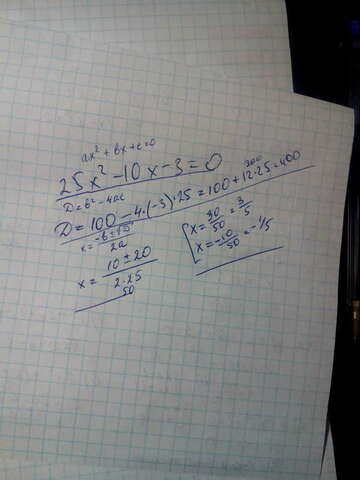 ax² + bx + c = 0
25x² - 10x - 3 = 0
D = b² - 4ac
D = 100 - 4·(-3)·25 = 100 + 12·25 = 400
300
x = -b ± √D / 2a
x = 10 ± 20 / 2·25
50
x = 30/50 = 3/5
x = -10/50 = -1/5